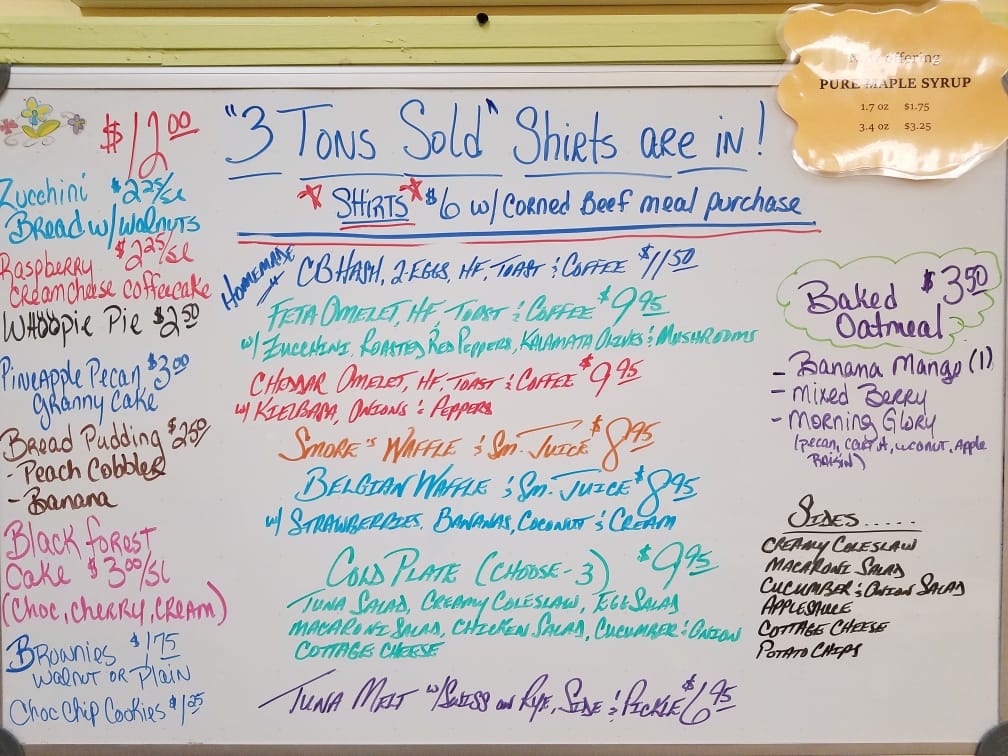 $12.00
Zucchini $2.25/sl
Bread w/ Walnuts
Raspberry $2.25/sl
Creamcheese Coffeecake
Whoopie Pie $2.50
Pineapple Pecan $3.00
Granny Cake
Bread Pudding $2.50
- Peach Cobbler
- Banana
Black forest
Cake $3.00/sl
(Choc, cherry, cream)
Brownies $1.75
Walnut or Plain
Choc Chip Cookies $1.25
"3 Tons Sold" Shirts are in!
* Shirts * $6 w/ Corned Beef meal purchase
Homemade CB Hash, 2-Eggs, HF, Toast & Coffee $11.50
Feta Omelet, HF, Toast & Coffee $9.95
w/ Zucchini, Roasted Red Peppers, Kalamata Olives & Mushrooms
Cheddar Omelet, HF, Toast & Coffee $9.95
w/ Kielbasa, Onions & Peppers
Smore's Waffle & Sm. Juice $8.95
Belgian Waffle & Sm. Juice $8.95
w/ Strawberries, Bananas, Coconut & Cream
Cold Plate (Choose - 3) $9.95
Tuna Salad, Creamy Coleslaw, Egg Salad
Macaroni Salad, Chicken Salad, Cucumber & Onion
Cottage Cheese
Tuna Melt w/ Swiss on Rye, Side & Pickle $6.95
offering
PURE MAPLE SYRUP
1.7 oz $1.75
3.4 oz $3.25
Baked $3.50
Oatmeal
- Banana Mango (1)
- Mixed Berry
- Morning Glory
(pecan, carrot, coconut, Apple
Raisin)
Sides.....
Creamy Coleslaw
Macaroni Salad
Cucumber & Onion Salad
Applesauce
Cottage Cheese
Potato Chips